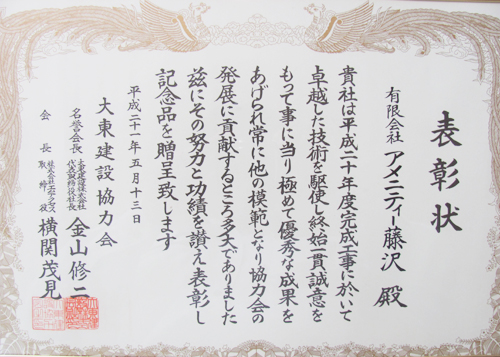 表彰状
有限会社 アメニティー藤沢 殿
貴社は平成二十年度完成工事に於いて
卓越した技術を駆使し終始一貫誠意を
もって事に当り極めて優秀な成果を
あげられ常に他の模範となり協力会の
発展に貢献するところ多大でありました
茲にその努力と功績を讃え表彰し
記念品を贈呈致します
平成二十一年五月十三日
大東建設協力会
名誉会長
代表取締役社長
金山修二
会長
取締役
横関茂見